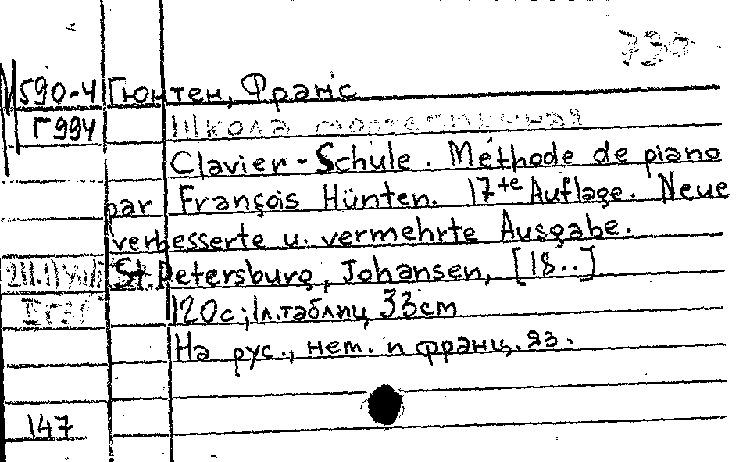 730
М590-4 Гюнтен, Франс
Г994 Школа фортепианная
Clavier-Schule. Méthode de piano
par François Hünten. 17te Auflage. Neue
verbesserte u. vermehrte Ausgabe.
St. Petersburg, Johansen, [18..]
120с; 1л.таблиц 33cm
На рус., нем. и франц. яз.
147